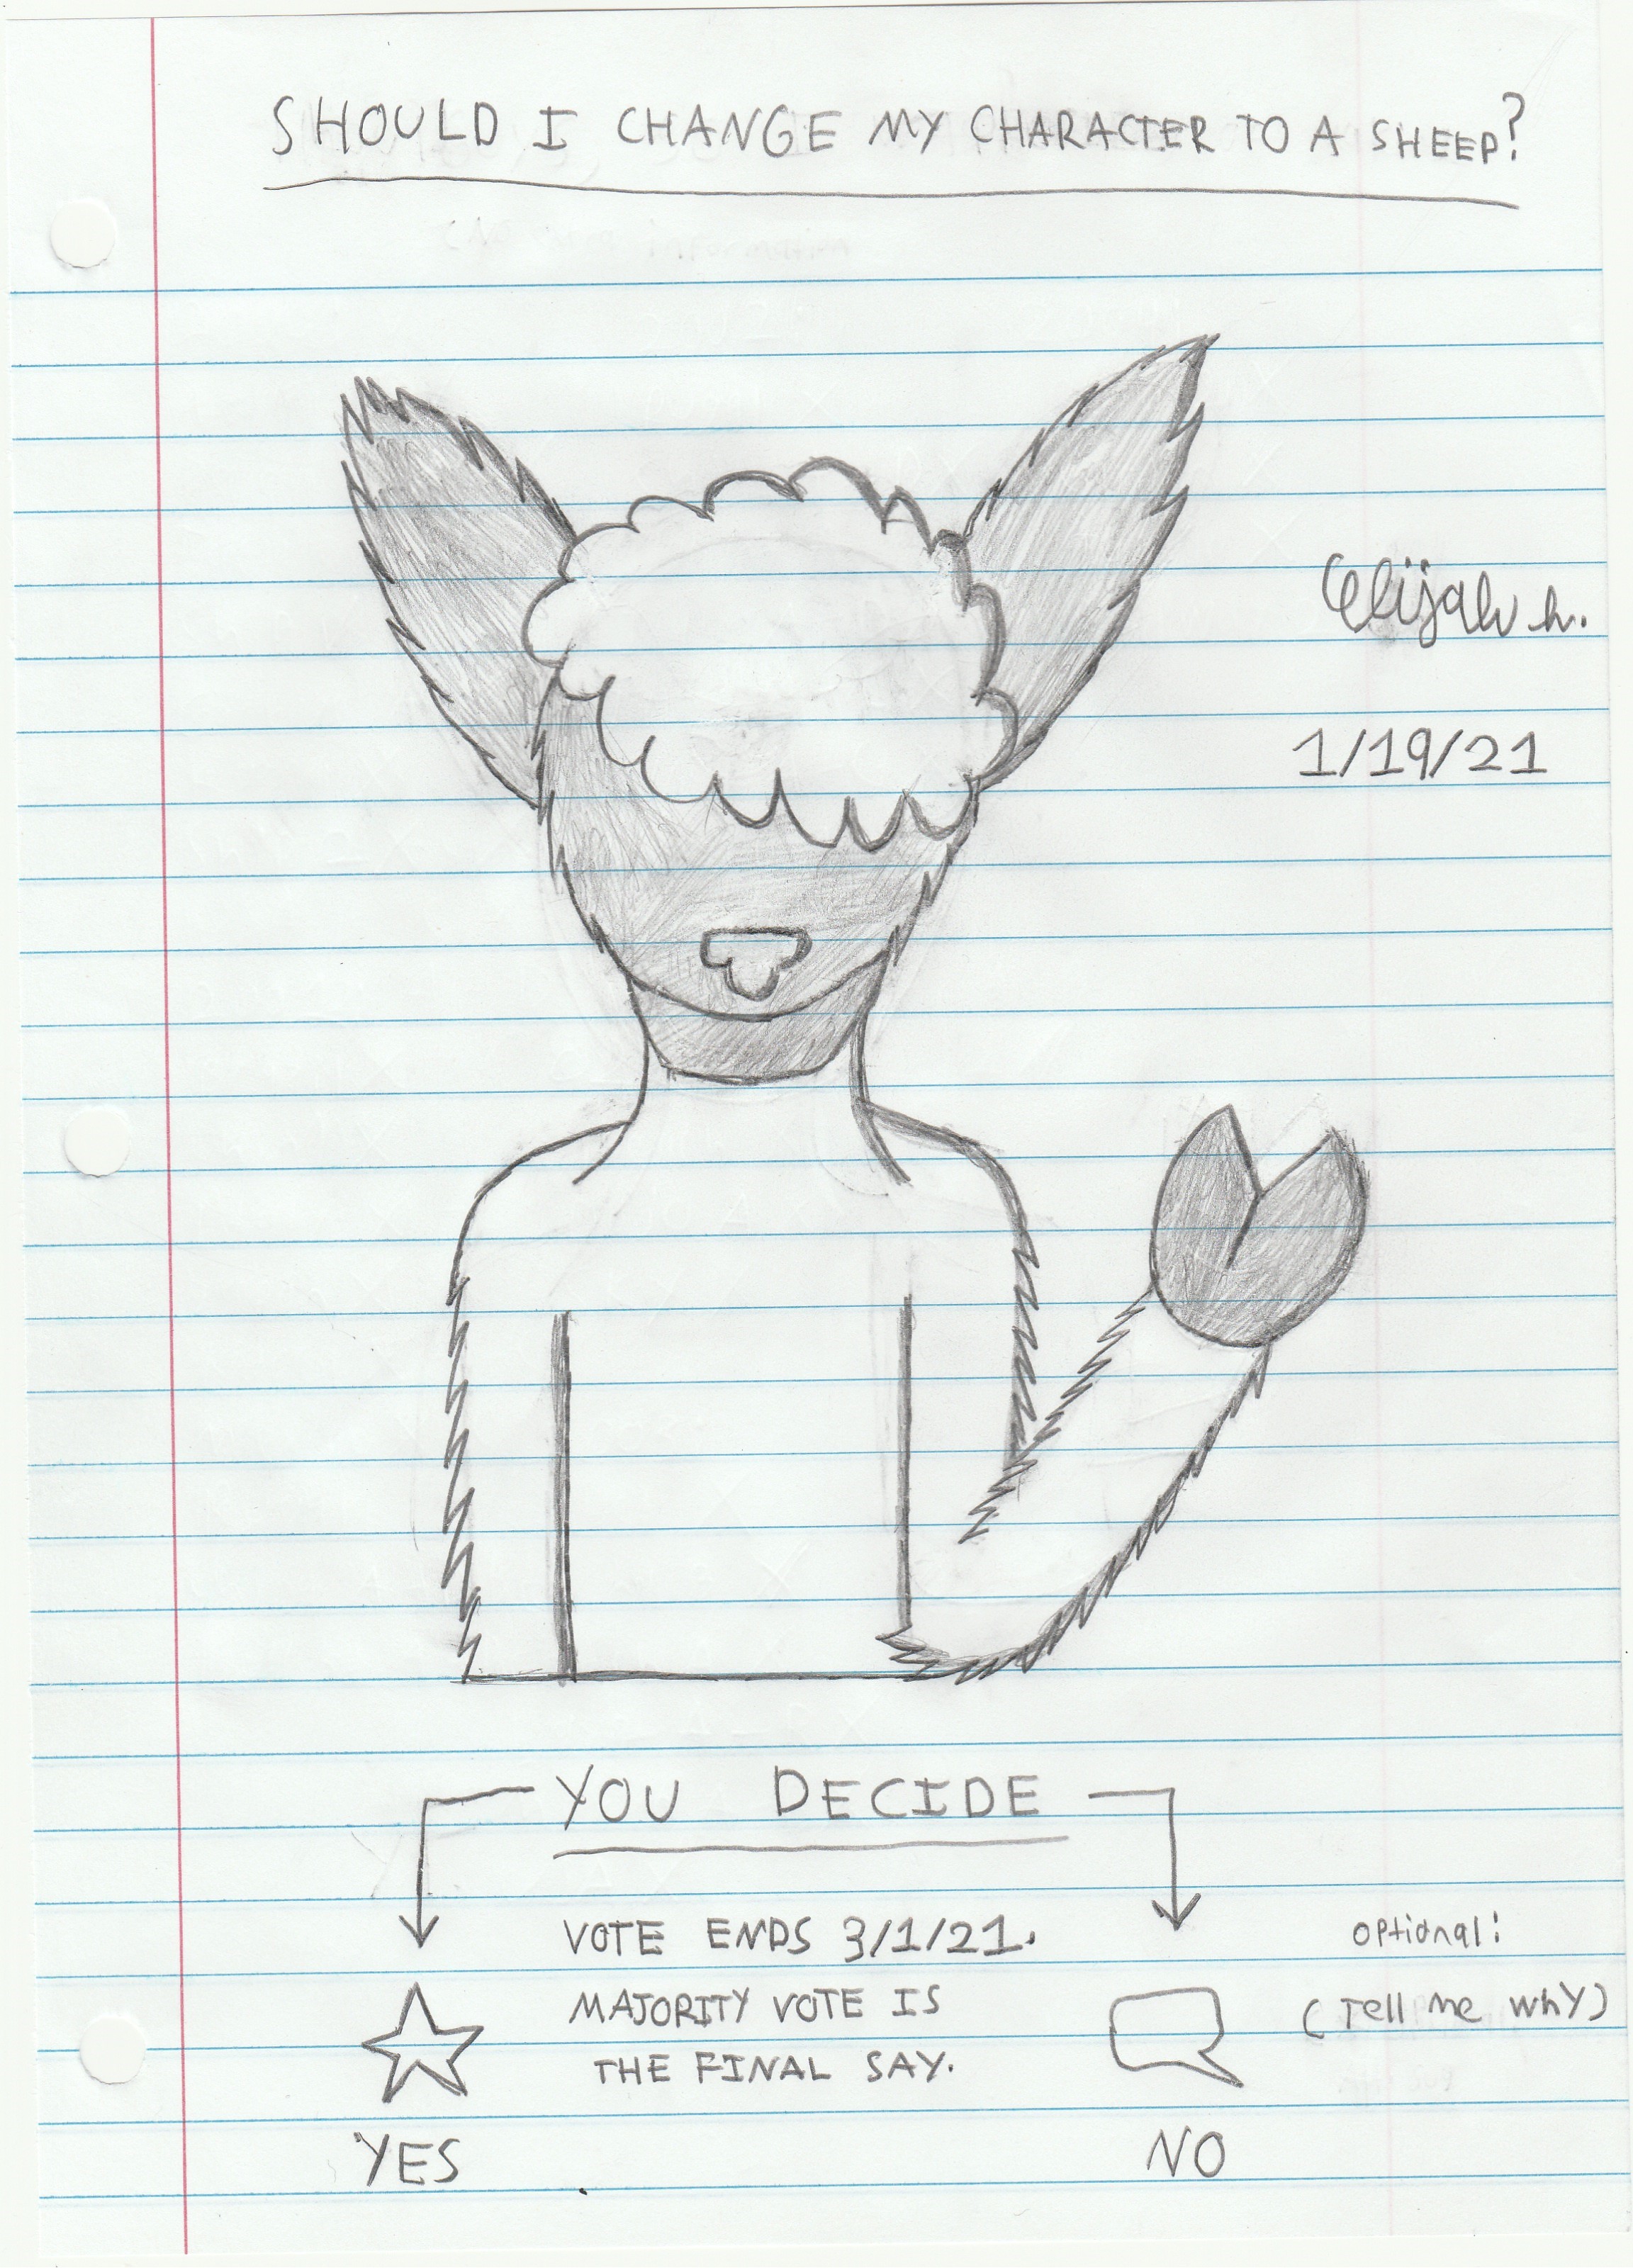 SHOULD I CHANGE MY CHARACTER TO A SHEEP?
Elijah h.
1/19/21
YOU DECIDE
VOTE ENDS 3/1/21.
MAJORITY VOTE IS
THE FINAL SAY.
optional:
(Tell me why)
YES
NO